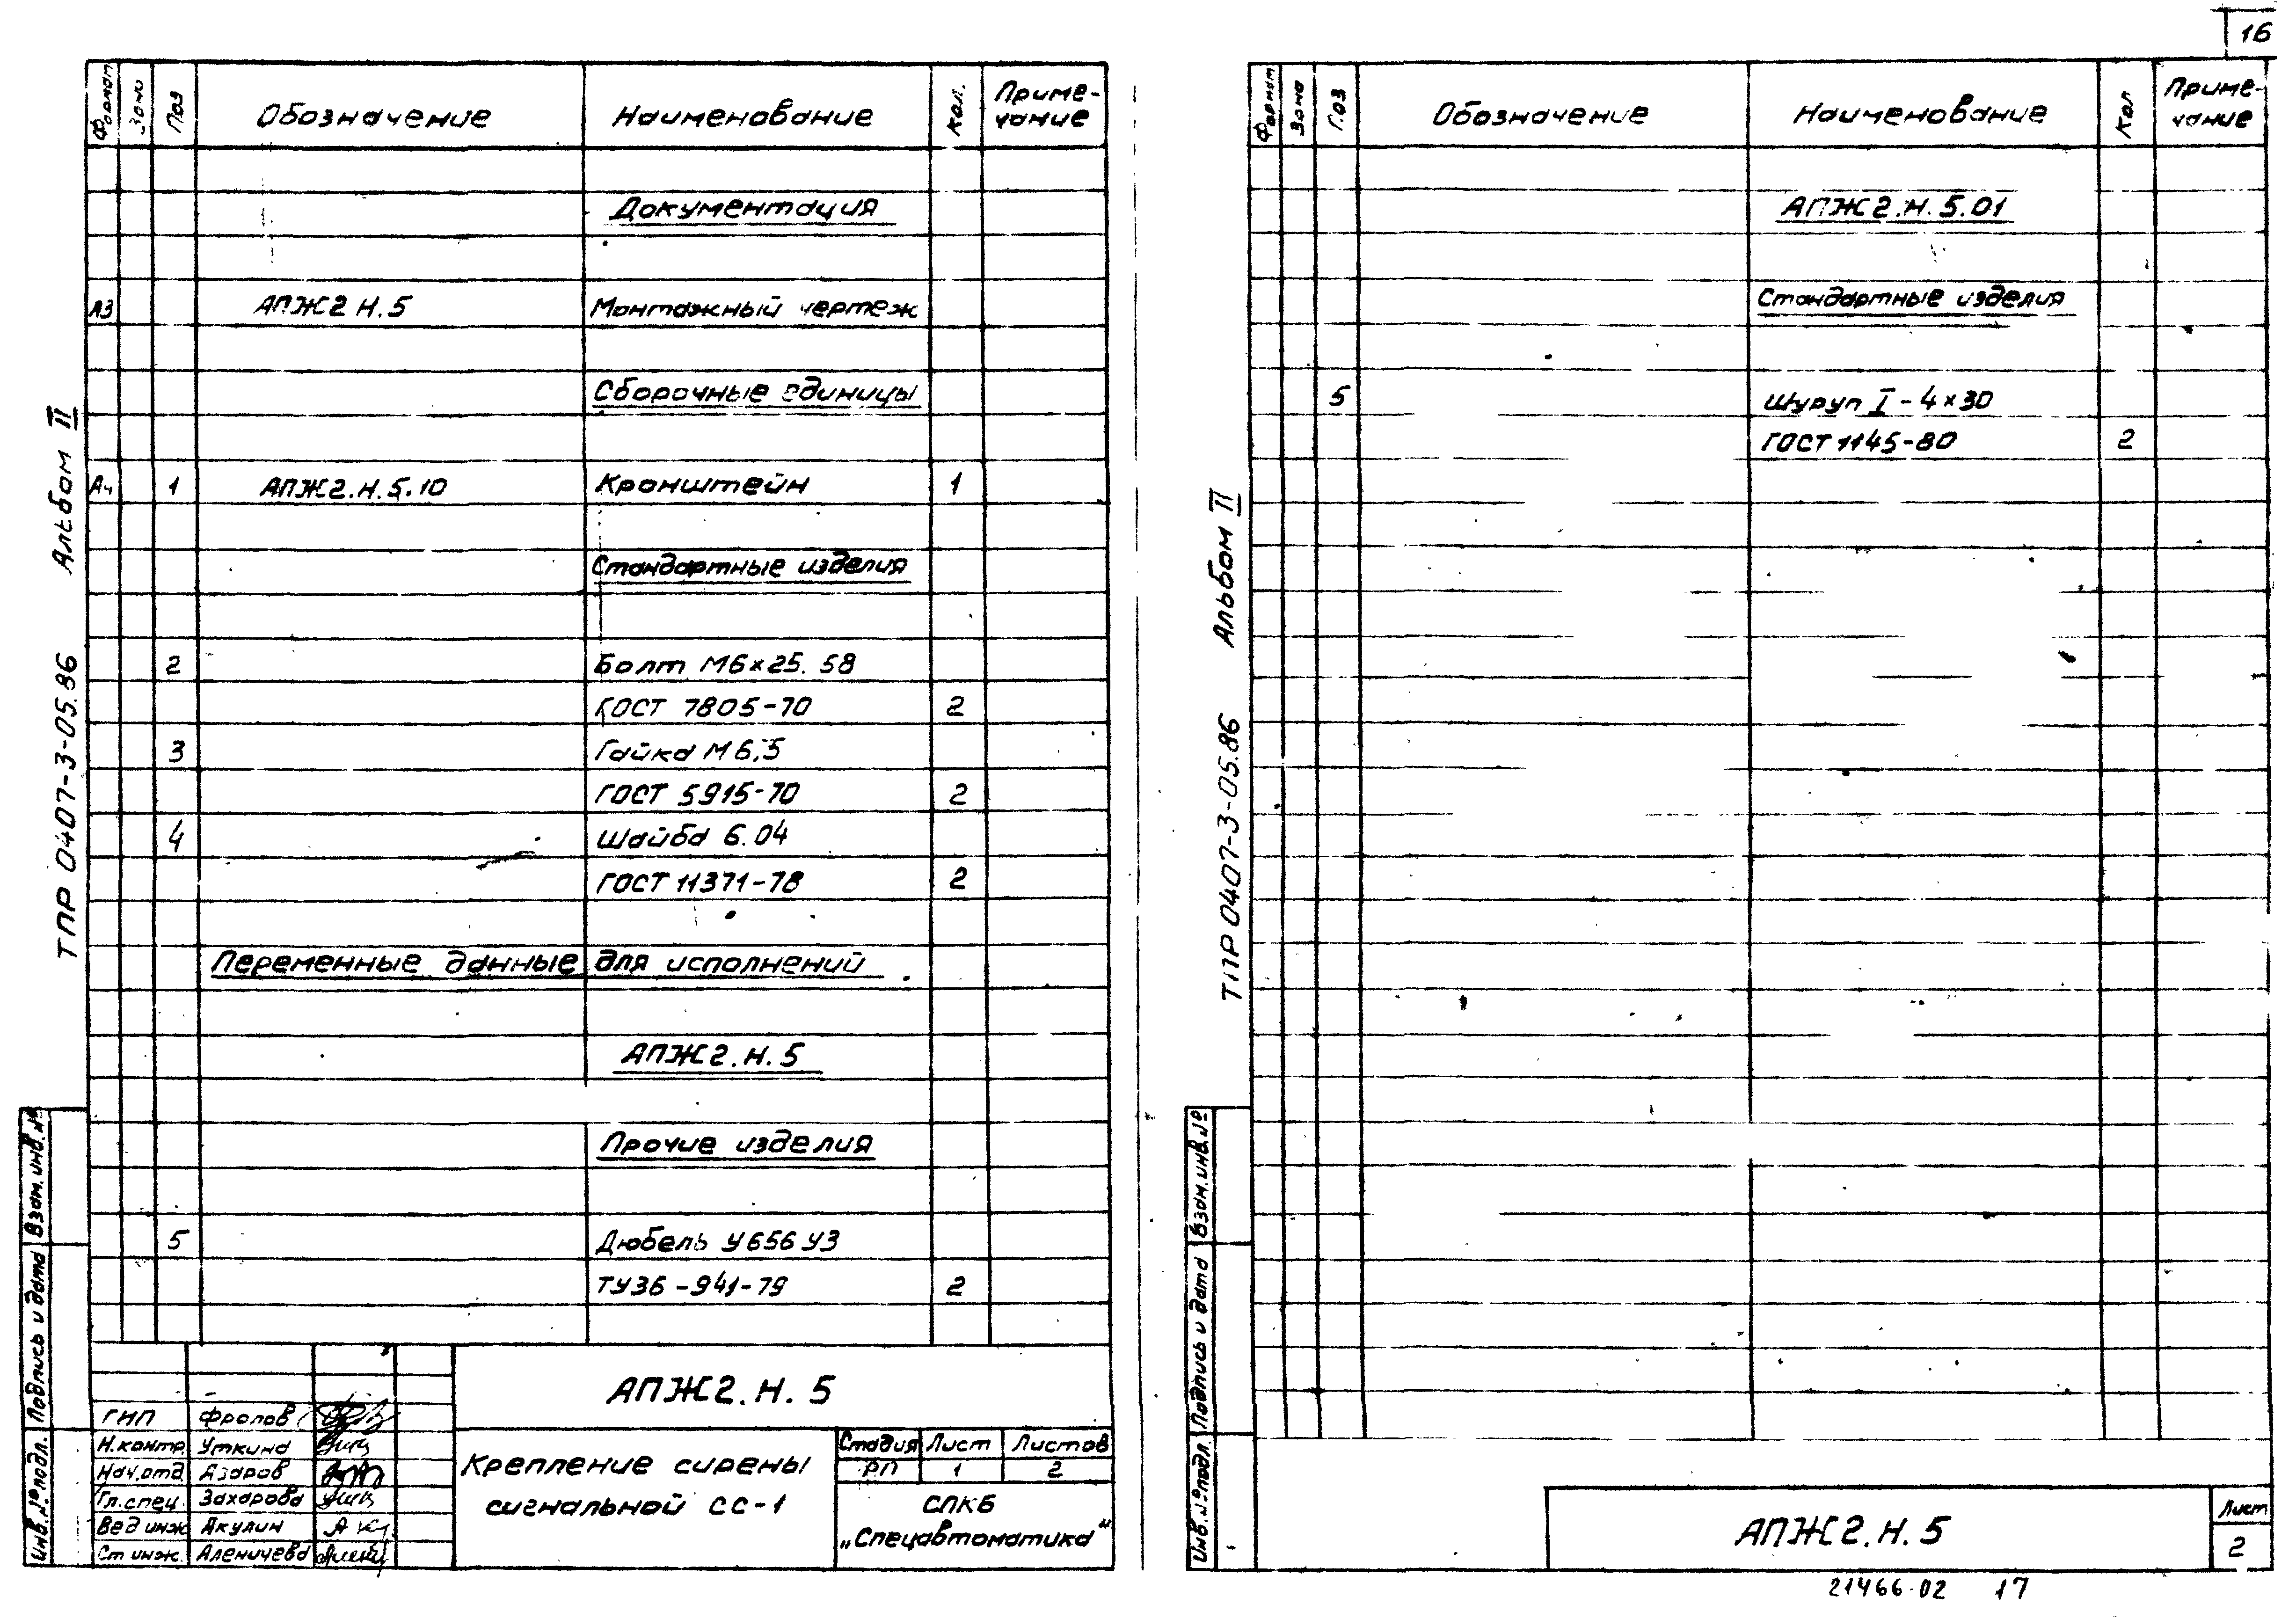 16
Формат Зона Поз Обозначение Наименование Кол. Приме-
чание
Документация
А3 АПЖ2 Н.5 Монтажный чертеж
Сборочные единицы
А4 1 АПЖ2.Н.5.10 Кронштейн 1
Стандартные изделия
2 Болт М6×25.58
ГОСТ 7805-70 2
3 Гайка М6.5
ГОСТ 5915-70 2
4 Шайба 6.04
ГОСТ 11371-78 2
Переменные данные для исполнений
АПЖ2.Н.5
Прочие изделия
5 Дюбель У656 У3
ТУ36-941-79 2
ТПР 0407-3-05.86 Альбом II
Инв.№подл. Подпись и дата Взам.инв.№
АПЖ2.Н.5
ГИП Фролов
Н.контр. Уткина
Нач.отд Азаров
Гл.спец. Захарова
Вед инж Акулин
Ст инж. Аленичева
Крепление сирены
сигнальной СС-1
Стадия Лист Листов
РП 1 2
СПКБ
„Спецавтоматика"
Формат Зона Поз Обозначение Наименование Кол Приме-
чание
АПЖ2.Н.5.01
Стандартные изделия
5 Шуруп I-4×30
ГОСТ 1145-80 2
ТПР 0407-3-05.86 Альбом II
Инв.№подл. Подпись и дата Взам.инв.№
АПЖ2.Н.5
Лист
2
21466-02 17